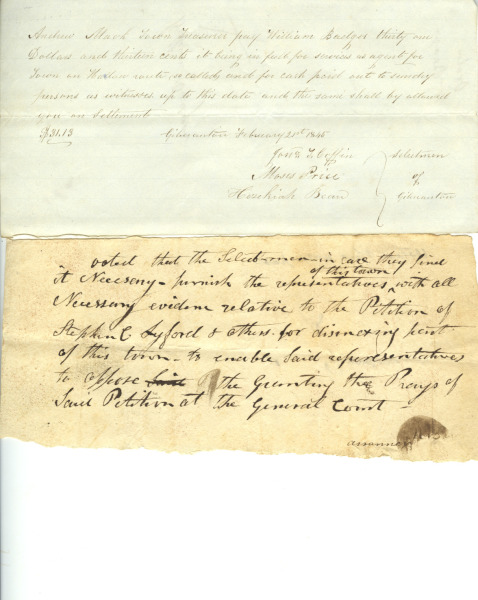 Andrew Mack Town Treasurer pay William Badger thirty one
Dollars and thirteen cents it being in full for services as agent for
Town on road so called and for cash paid out to sundry
persons as witnesses up to this date and the same shall be allowed
you on Settlement
$31.13 Gilmanton February 21st 1846
Jona T. Coffin
Moses Price
Hezekiah Bean
Selectmen
of
Gilmanton
voted that the Select-men-in case they find
it Necessary-furnish the representatives of this town with all
Necessary evidence relative to the Petition of
Stephen C Lyford & others for disnexing part
of this town-to enable Said representatives
to oppose Said the Granting the Prayr of
Said Petition at the General Court-